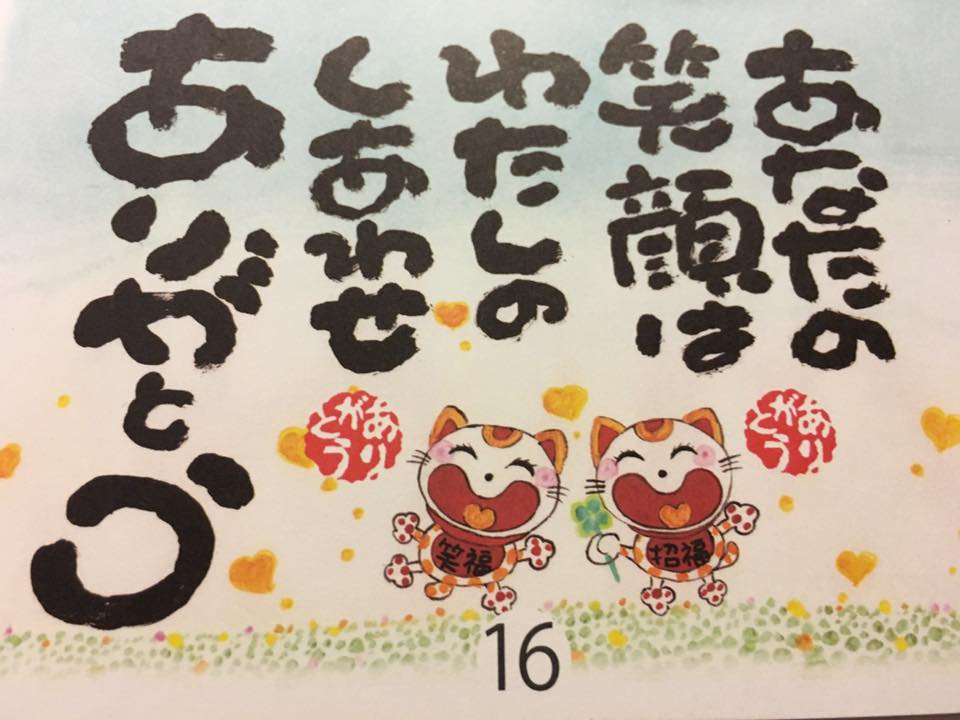 あなたの
笑顔は
わたしの
しあわせ
ありがとう
ありがとう
ありがとう
笑福
招福
16